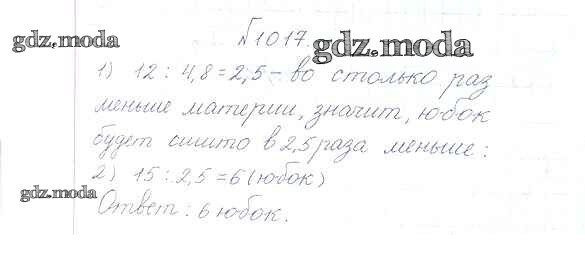 gdz.moda
№1017.
gdz.moda
1) 12 : 4,8 = 2,5 – во столько раз
меньше материи, значит, юбок
будет сшито в 2,5 раза меньше:
2) 15 : 2,5 = 6 (юбок)
gdz.moda
Ответ: 6 юбок.